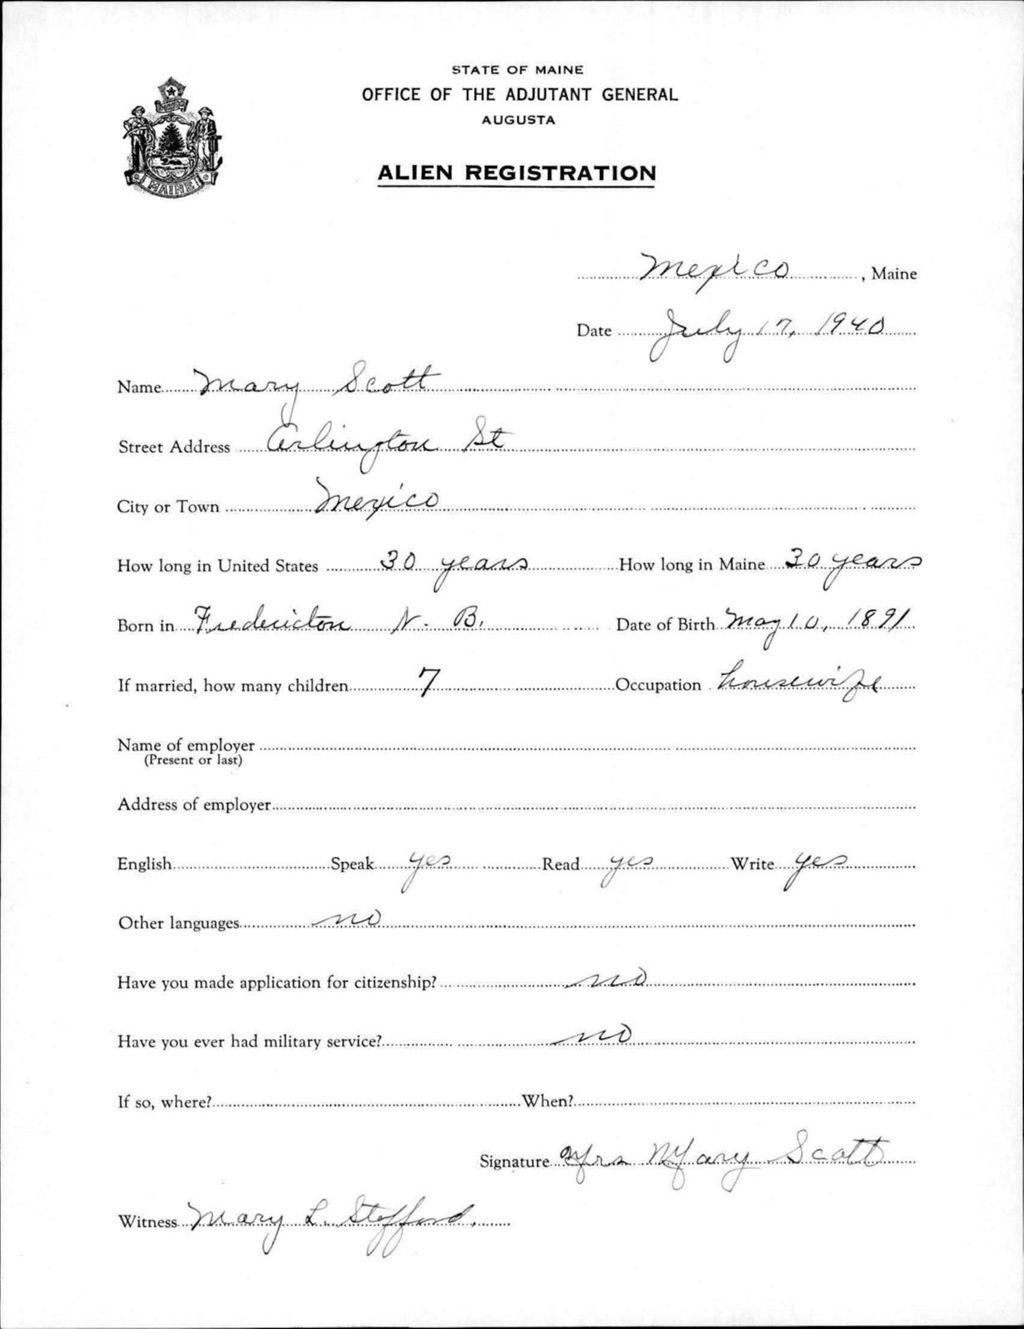 STATE OF MAINE
OFFICE OF THE ADJUTANT GENERAL
AUGUSTA
ALIEN REGISTRATION
MAINE
Mexico, Maine
Date July 17, 1940
Name Mary Scott
Street Address Arlington St
City or Town Mexico
How long in United States 30 years How long in Maine 30 years
Born in Fredericton N. B. Date of Birth May 10, 1891
If married, how many children 7 Occupation housewife
Name of employer
(Present or last)
Address of employer
English Speak yes Read yes Write yes
Other languages no
Have you made application for citizenship? no
Have you ever had military service? no
If so, where? When?
Signature Mrs Mary Scott
Witness Mary L. Stofford